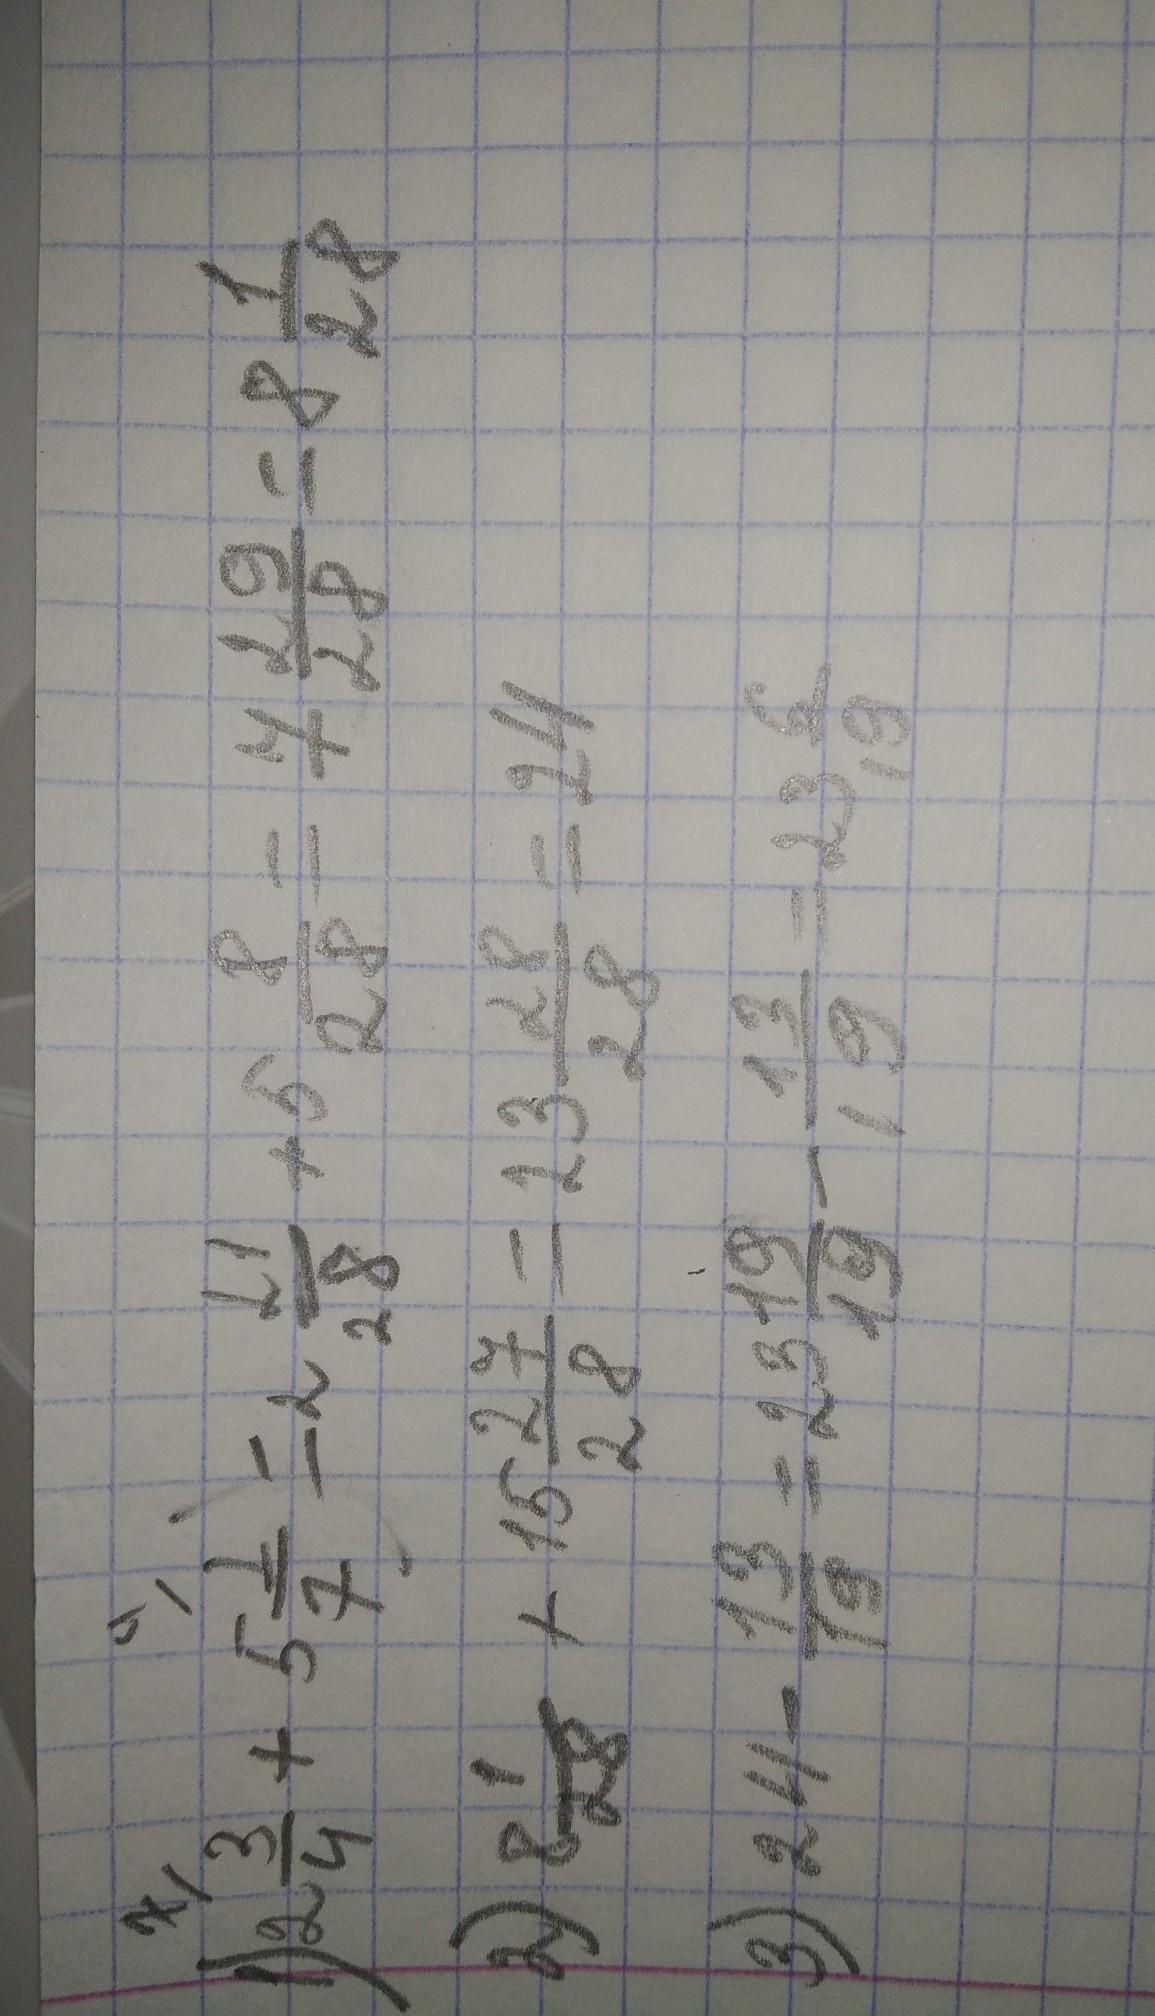 7/ 4/
1) 2 3/4 + 5 1/7 = 2 21/28 + 5 8/28 = 7 29/28 = 8 1/28
2) 8 1/28 + 15 27/28 = 23 28/28 = 24
3) 24 - 13/19 = 23 19/19 - 13/19 = 23 6/19